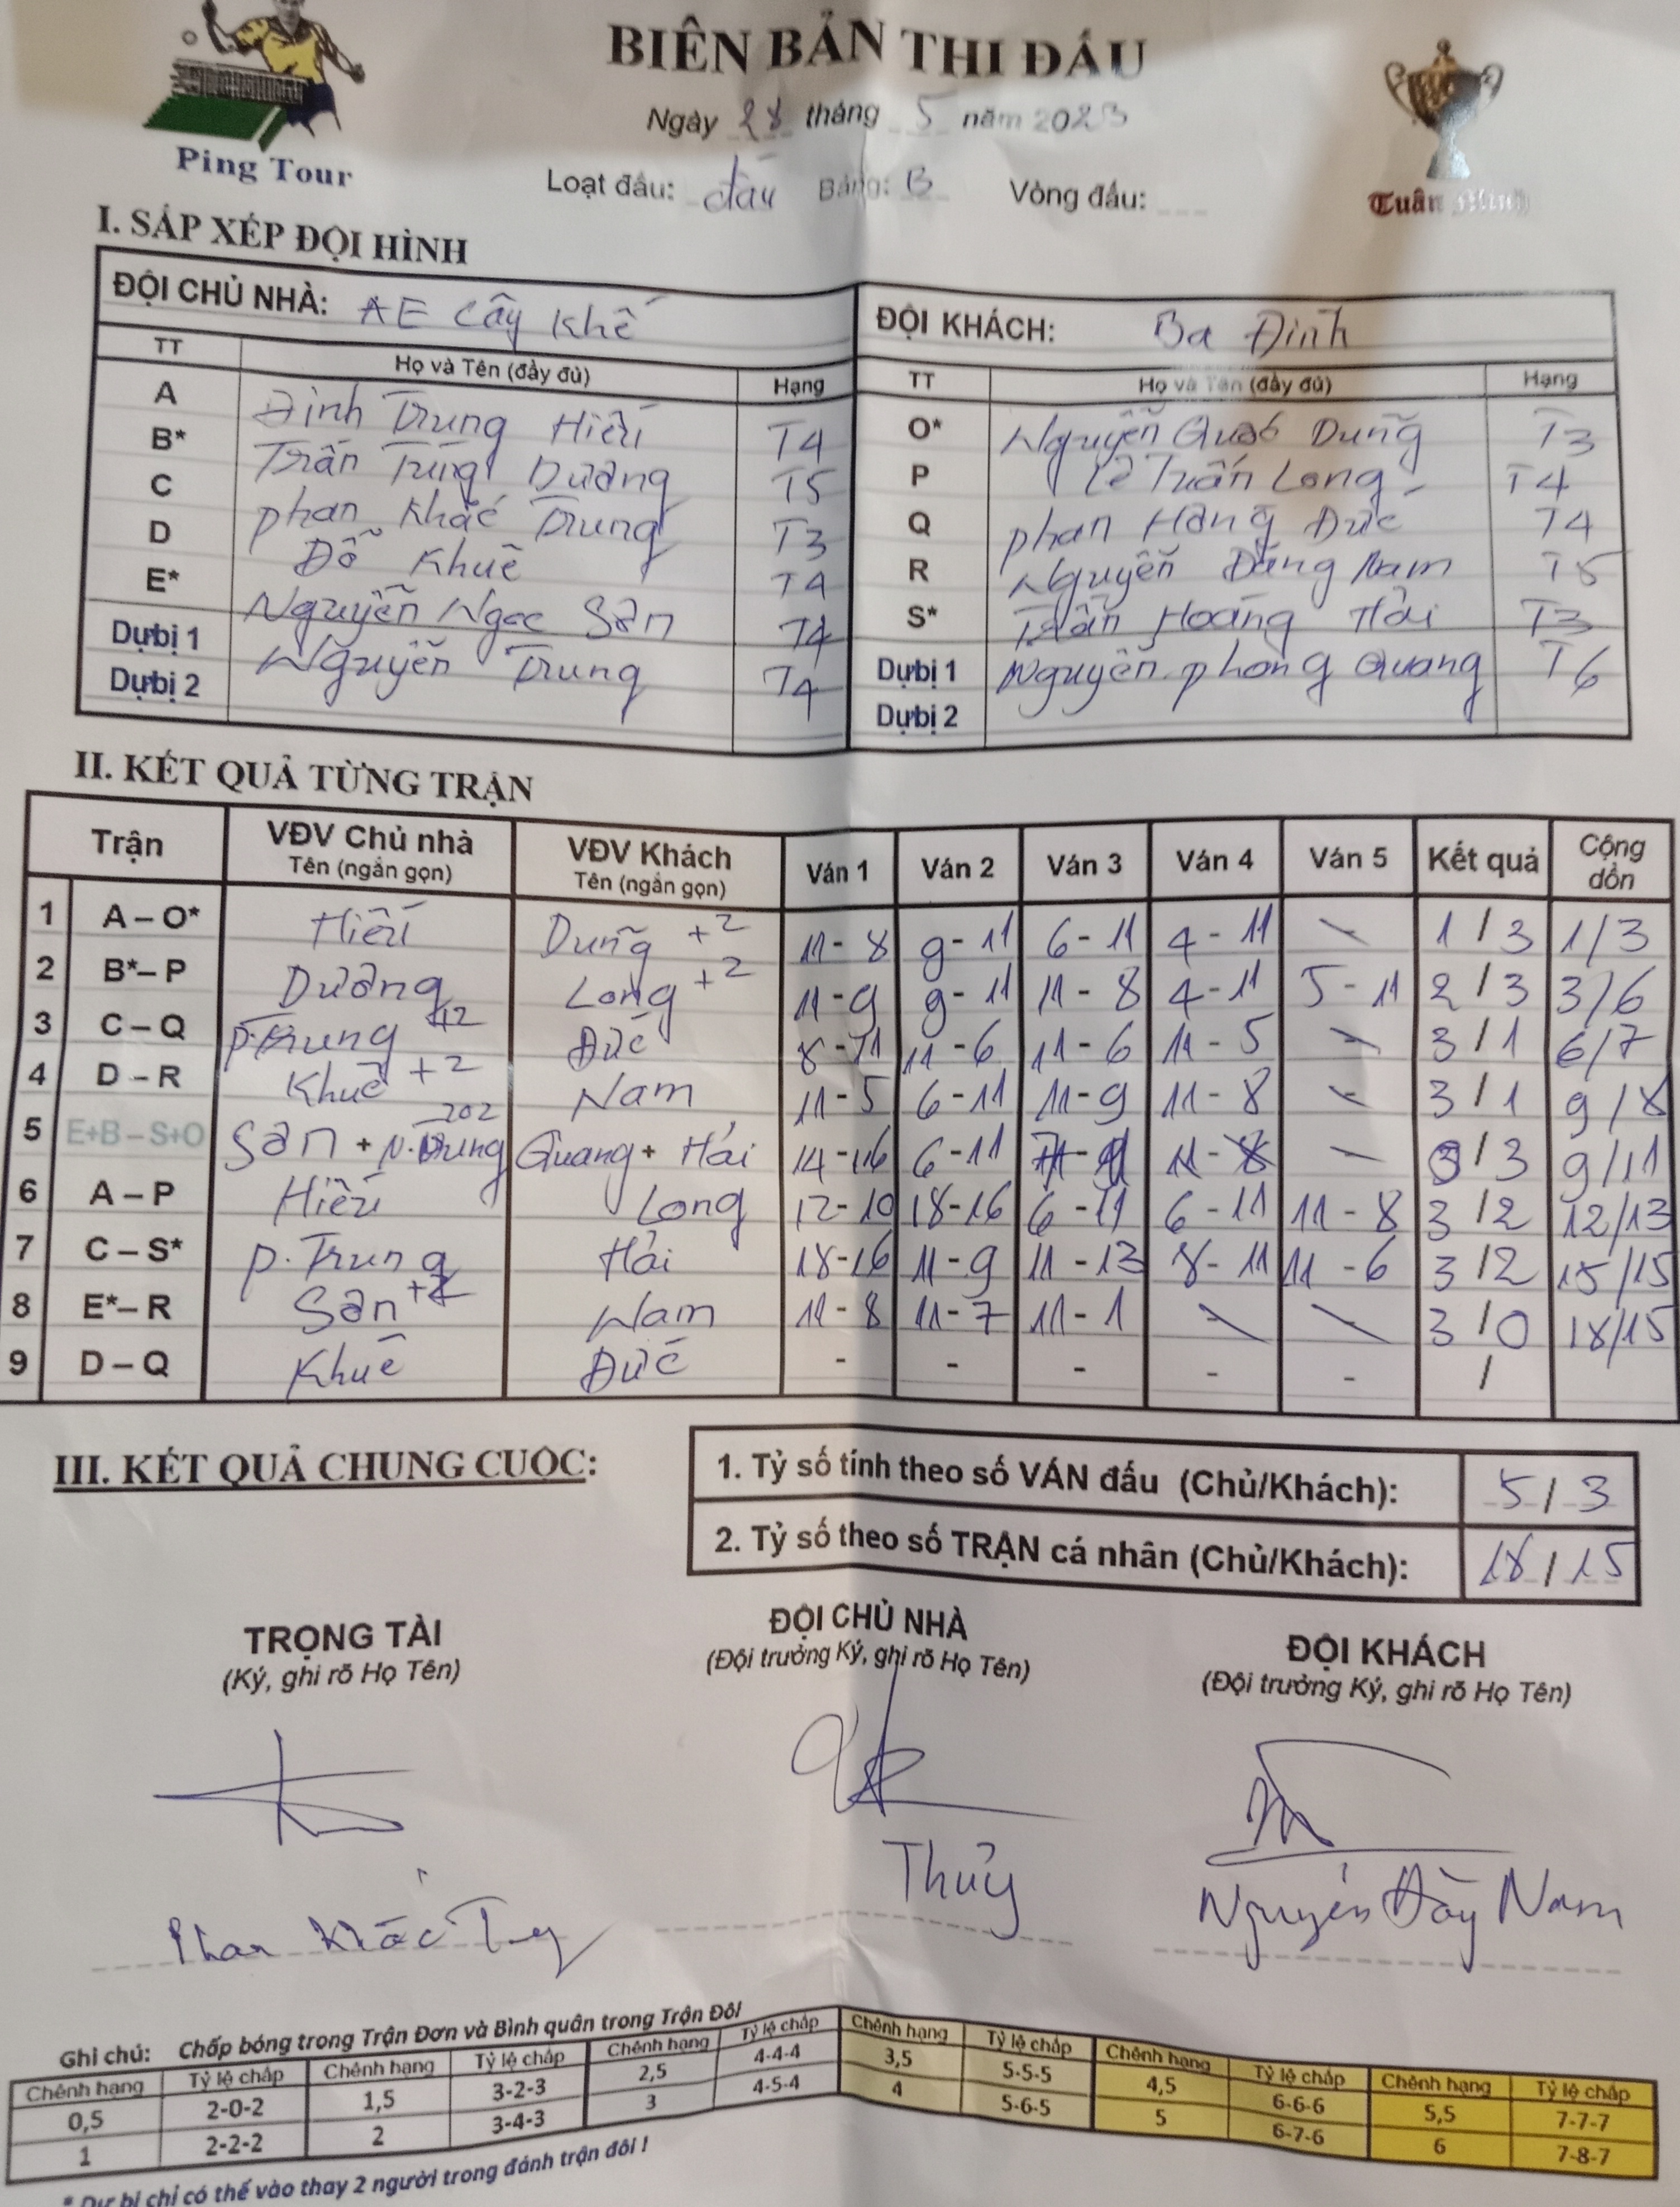 BIÊN BẢN THI ĐẤU
Ngày 28 tháng 5 năm 2023
Ping Tour
Loạt đấu: đấu Bảng: B Vòng đấu:
Tuấn Minh
I. SẮP XẾP ĐỘI HÌNH
ĐỘI CHỦ NHÀ: AE Cây Khế ĐỘI KHÁCH: Ba Đình
TT Họ và Tên (đầy đủ) Hạng TT Họ và Tên (đầy đủ) Hạng
A Đinh Trung Hiếu T4 O* Nguyễn Quốc Dũng T3
B* Trần Tùng Dương T5 P Lê Tuấn Long T4
C Phan Khắc Trung T3 Q Phan Hồng Đức T4
D Đỗ Khuê T4 R Nguyễn Đăng Nam T5
E* Nguyễn Ngọc Sơn T4 S* Trần Hoàng Hải T3
Dự bị 1 Nguyễn Trung T4 Dự bị 1 Nguyễn Phong Quang T6
Dự bị 2 Dự bị 2
II. KẾT QUẢ TỪNG TRẬN
Trận VĐV Chủ nhà VĐV Khách Ván 1 Ván 2 Ván 3 Ván 4 Ván 5 Kết quả Cộng dồn
Tên (ngắn gọn) Tên (ngắn gọn)
1 A – O* Hiếu Dũng +2 11 - 8 9 - 11 6 - 11 4 - 11 1 / 3 1/3
2 B* – P Dương Long +2 11 - 9 9 - 11 11 - 8 4 - 11 5 - 11 2 / 3 3/6
3 C – Q P.Trung +2 Đức 8 - 11 11 - 6 11 - 6 11 - 5 3 / 1 6/7
4 D – R Khuê +2 Nam 11 - 5 6 - 11 11 - 9 11 - 8 3 / 1 9/8
5 E+B – S+O Sơn + N.Trung 202 Quang + Hải 14 - 16 6 - 11 0 / 3 9/11
6 A – P Hiếu Long 12 - 10 18 - 16 6 - 11 6 - 11 11 - 8 3 / 2 12/13
7 C – S* P. Trung Hải 18 - 16 11 - 9 11 - 13 8 - 11 11 - 6 3 / 2 15/15
8 E* – R Sơn +2 Nam 11 - 8 11 - 7 11 - 1 3 / 0 18/15
9 D – Q Khuê Đức - - - - - /
III. KẾT QUẢ CHUNG CUỘC:
1. Tỷ số tính theo số VÁN đấu (Chủ/Khách): 5 / 3
2. Tỷ số theo số TRẬN cá nhân (Chủ/Khách): 18 / 15
TRỌNG TÀI ĐỘI CHỦ NHÀ ĐỘI KHÁCH
(Ký, ghi rõ Họ Tên) (Đội trưởng Ký, ghi rõ Họ Tên) (Đội trưởng Ký, ghi rõ Họ Tên)
Phan Khắc Thủy Nguyễn Nam
Ghi chú: Chấp bóng trong Trận Đơn và Bình quân trong Trận Đôi
Chênh hạng Tỷ lệ chấp Chênh hạng Tỷ lệ chấp Chênh hạng Tỷ lệ chấp Chênh hạng Tỷ lệ chấp Chênh hạng Tỷ lệ chấp Chênh hạng Tỷ lệ chấp
0,5 2-0-2 1,5 3-2-3 2,5 4-4-4 3,5 5-5-5 4,5 6-6-6 5,5 7-7-7
1 2-2-2 2 3-4-3 3 4-5-4 4 5-6-5 5 6-7-6 6 7-8-7
* Dự bị chỉ có thể vào thay 2 người trong đánh trận đôi !